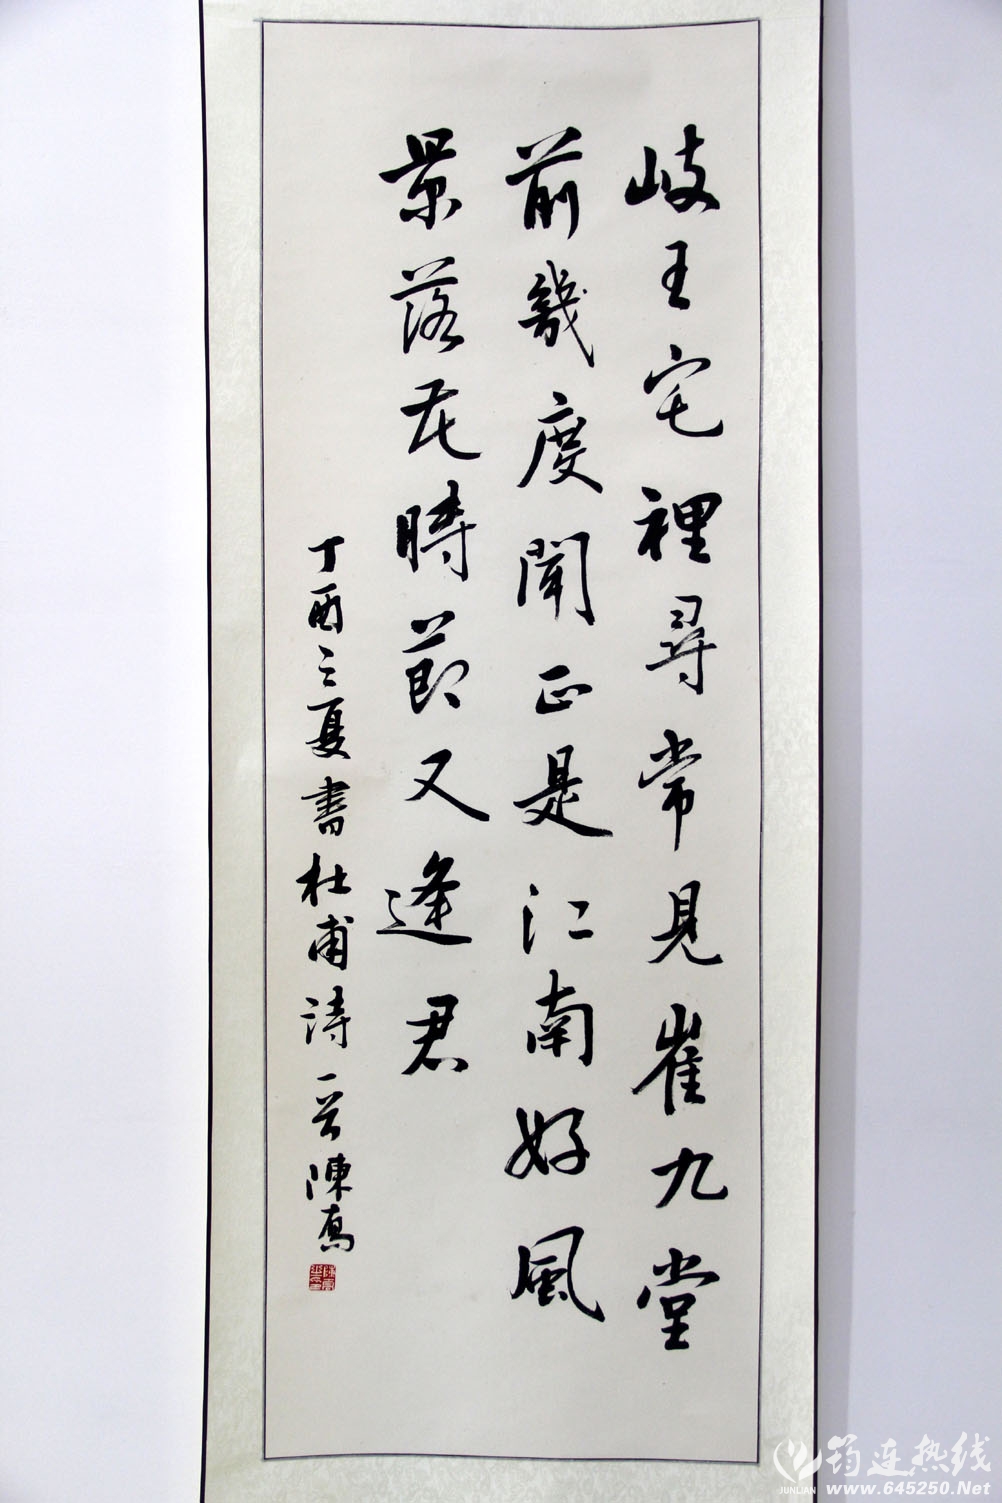 岐王宅裡尋常見崔九堂
前幾度聞正是江南好風
景落花時節又逢君
丁酉之夏書杜甫詩 陳
筠连热线
JUNLIAN
www.645250.Net